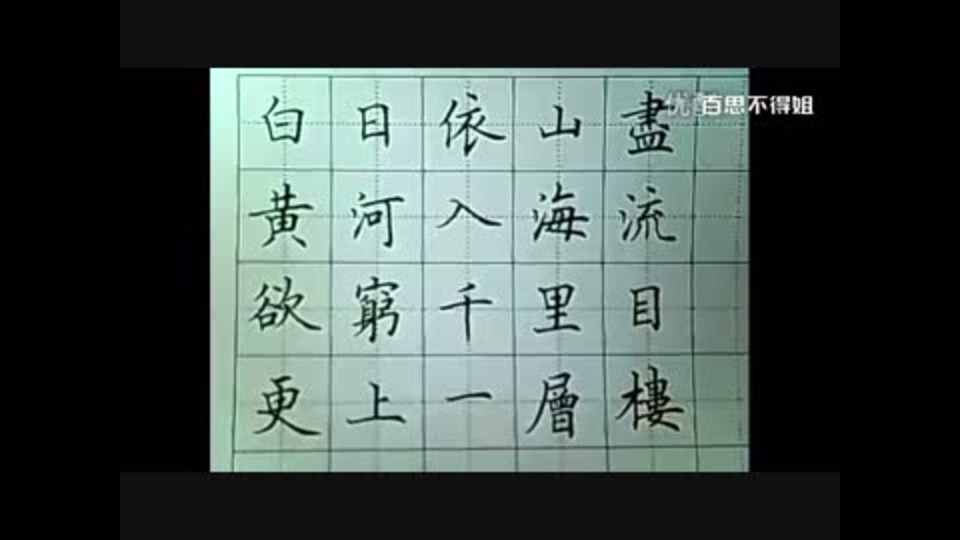 白日依山盡
黄河入海流
欲窮千里目
更上一層樓
百思不得姐